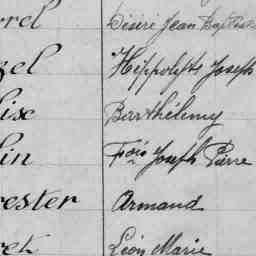 rrel Désiré Jean Baptiste
zel Hippolyte Joseph
lise Barthélemy
lin Fçois Joseph Pierre
rester Armand
ret Léon Marie